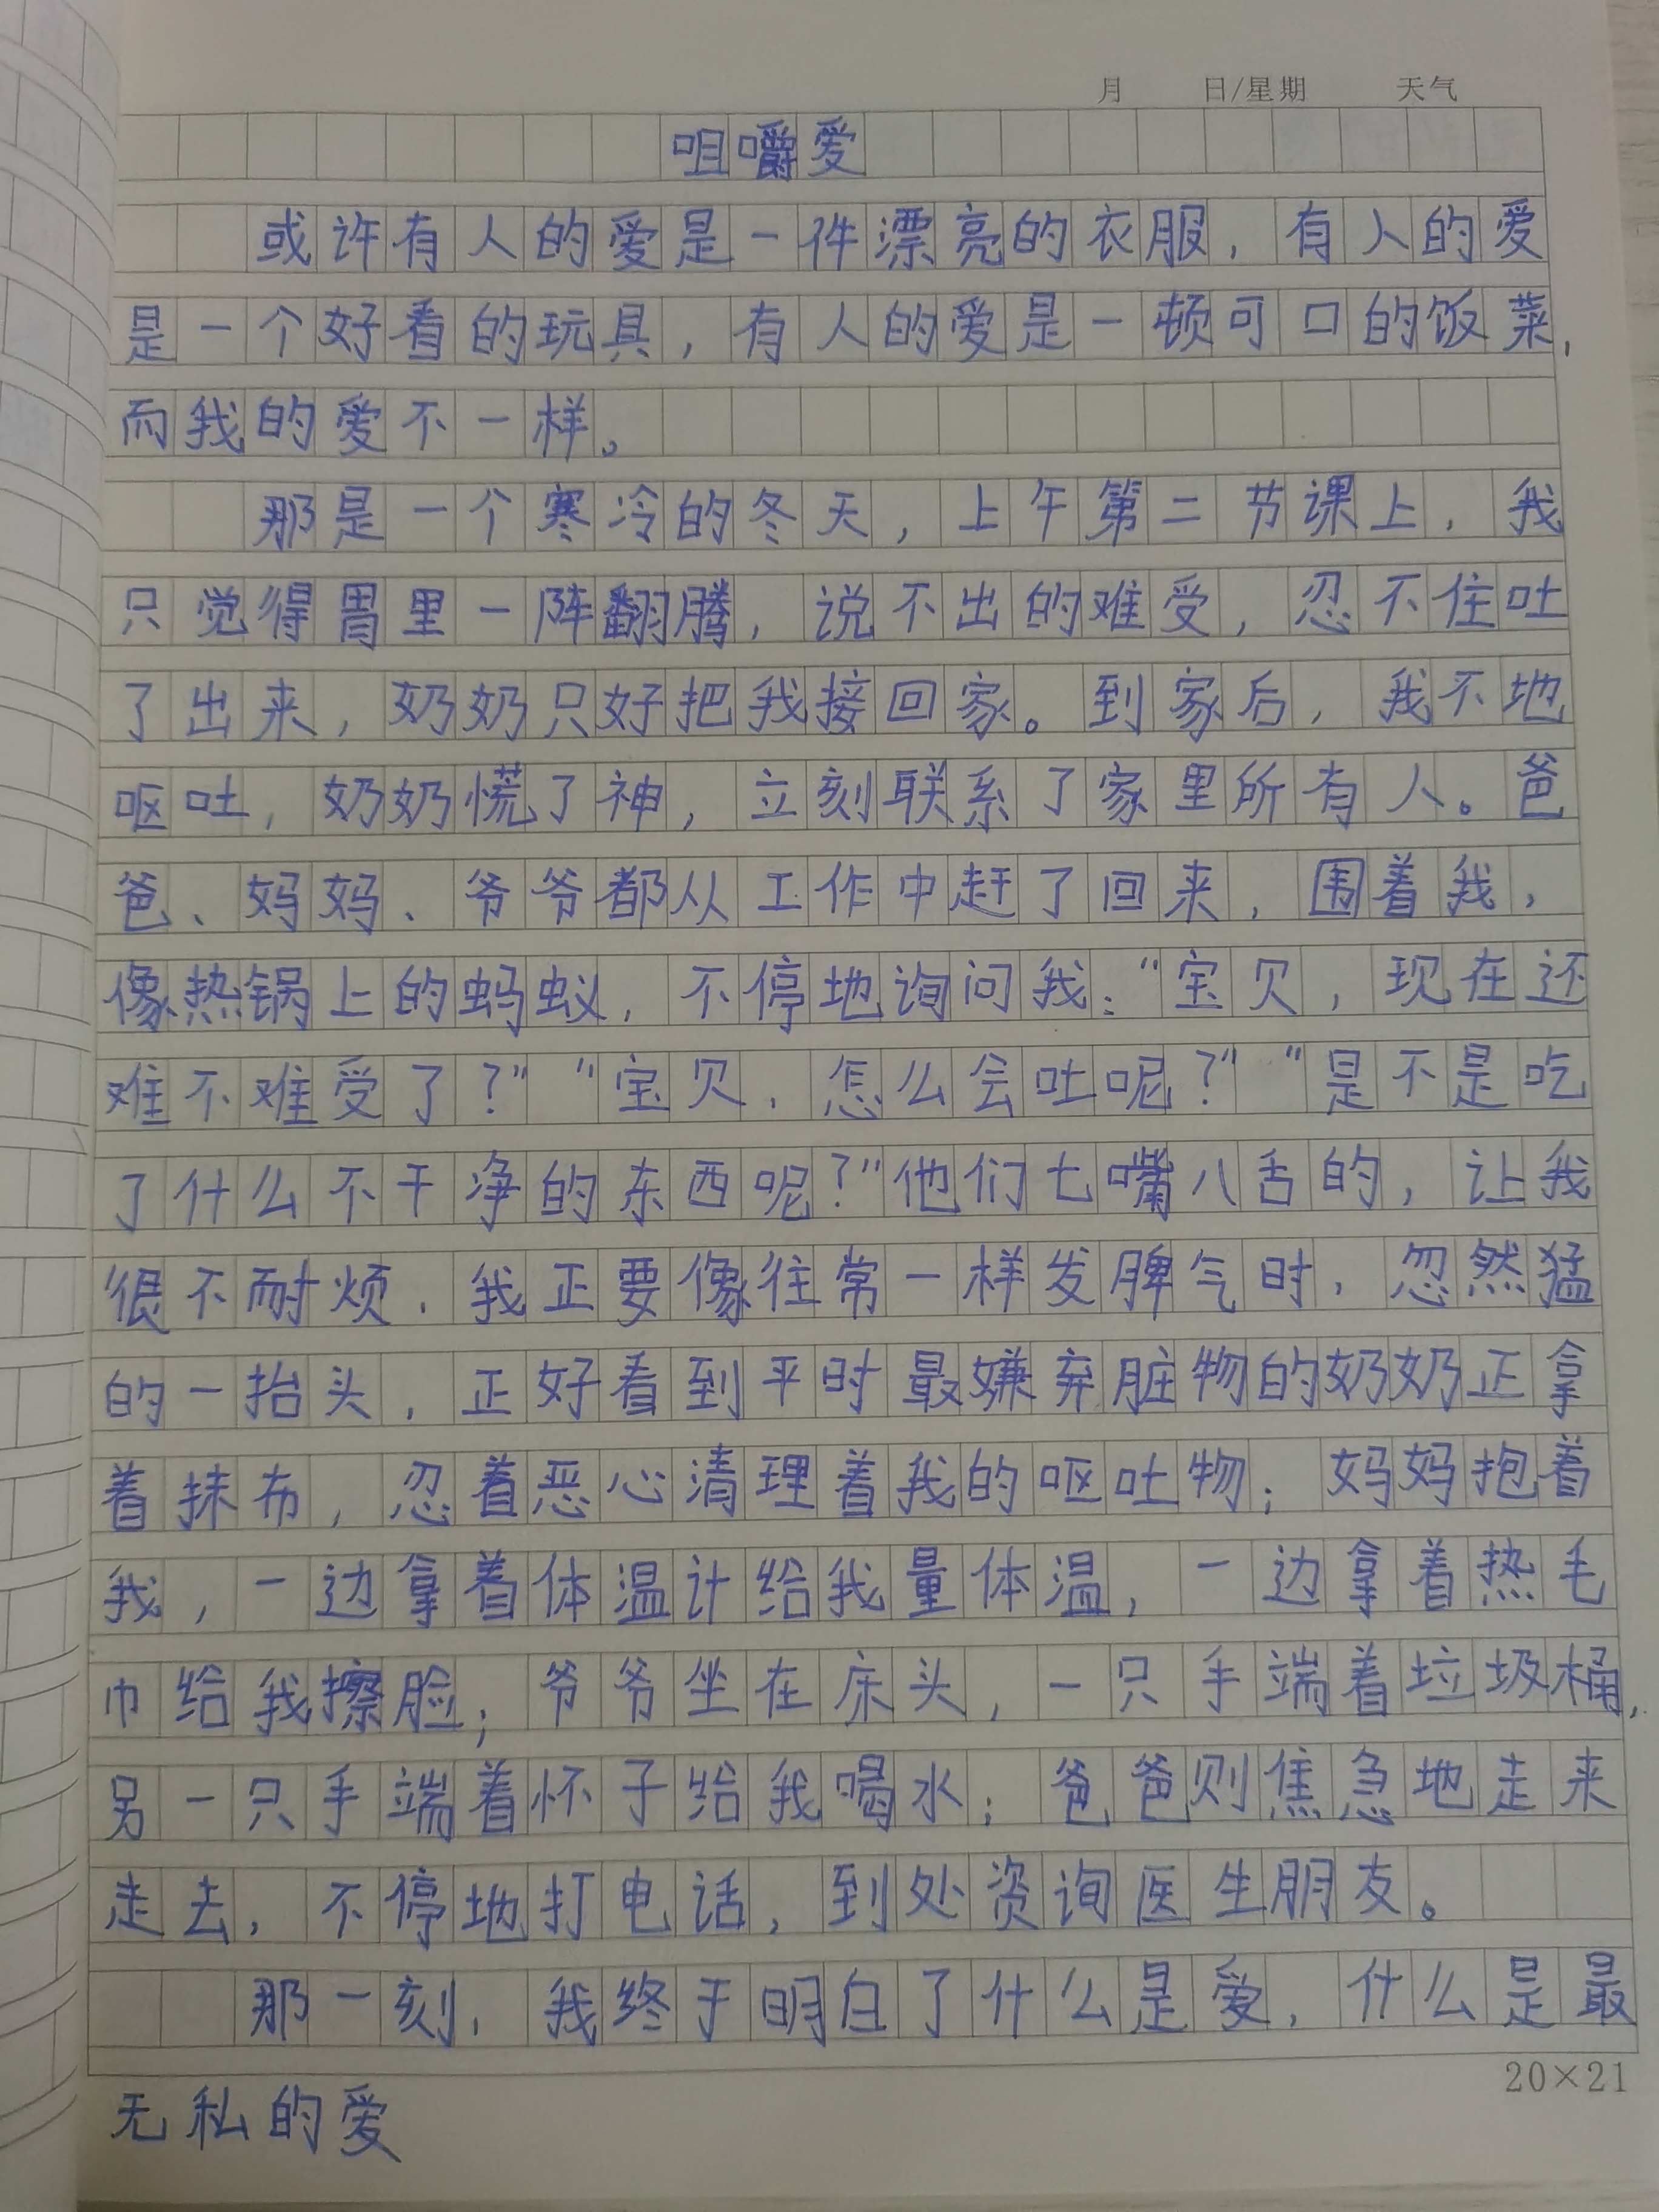 月 日/星期 天气
咀嚼爱
或许有人的爱是一件漂亮的衣服，有人的爱
是一个好看的玩具，有人的爱是一顿可口的饭菜，
而我的爱不一样。
那是一个寒冷的冬天，上午第二节课上，我
只觉得胃里一阵翻腾，说不出的难受，忍不住吐
了出来，奶奶只好把我接回家。到家后，我不地
呕吐，奶奶慌了神，立刻联系了家里所有人。爸
爸、妈妈、爷爷都从工作中赶了回来，围着我，
像热锅上的蚂蚁，不停地询问我：“宝贝，现在还
难不难受了？”“宝贝，怎么会吐呢？”“是不是吃
了什么不干净的东西呢？”他们七嘴八舌的，让我
很不耐烦，我正要像往常一样发脾气时，忽然猛
的一抬头，正好看到平时最嫌弃脏物的奶奶正拿
着抹布，忍着恶心清理着我的呕吐物；妈妈抱着
我，一边拿着体温计给我量体温，一边拿着热毛
巾给我擦脸；爷爷坐在床头，一只手端着垃圾桶，
另一只手端着怀子给我喝水；爸爸则焦急地走来
走去，不停地打电话，到处资询医生朋友。
那一刻，我终于明白了什么是爱，什么是最
20×21
无私的爱